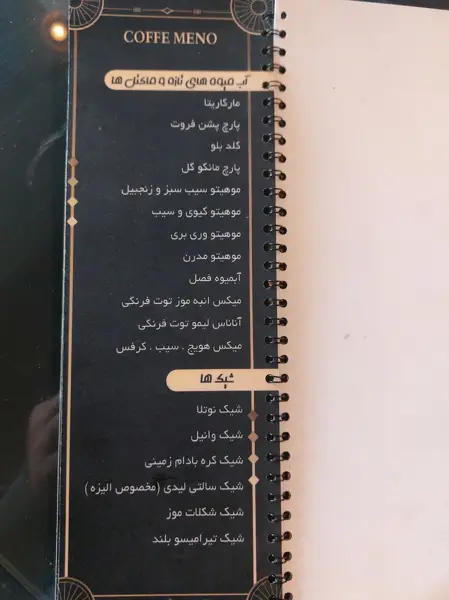 COFFE MENO
آب میوه های تازه و ماکتل ها
مارگاریتا
پارچ پشن فروت
گلد بلو
پارچ مانگو گل
موهیتو سیب سبز و زنجبیل
موهیتو کیوی و سیب
موهیتو وری بری
موهیتو مدرن
آبمیوه فصل
میکس انبه موز توت فرنگی
آناناس لیمو توت فرنگی
میکس هویج . سیب . کرفس
شیک ها
شیک نوتلا
شیک وانیل
شیک کره بادام زمینی
شیک سالتی لیدی (مخصوص الیزه)
شیک شکلات موز
شیک تیرامیسو بلند